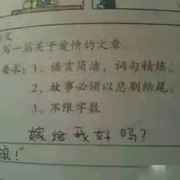 写一篇关于爱情的文章.
要求：1、语言简洁，词句精炼。
2、故事必须以悲剧结尾。
3、不限字数
嫁给我好吗？
滚！"